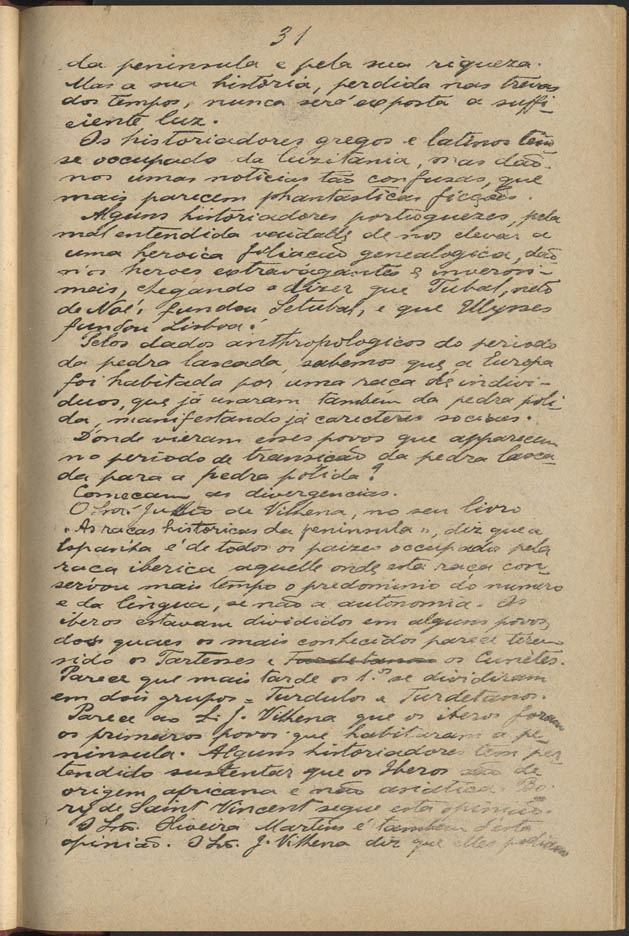 31
da peninsula e pela sua riqueza.
Mas a sua historia, perdida nas trevas
dos tempos, nunca será exposta a suffi-
ciente luz.
Os historiadores gregos e latinos tem
se occupado da Luzitania, mas dão-
nos umas noticias tão confusas, que
mais parecem phantasticas ficções.
Alguns historiadores portuguezes, pela
mal entendida vaidade de nos elevar a
uma heroica filiação genealogica, dão
n'os heroes extravagantes e inverosi-
meis, chegando a dizer que Tubal, neto
de Noé, fundou Setubal, e que Ulysses
fundou Lisboa!
Pelos dados anthropologicos do periodo
da pedra lascada, sabemos que a Europa
foi habitada por uma raça de indivi-
duos, que já usaram tambem da pedra poli-
da, manifestando já caracteres sociaes.
D'onde vieram esses povos que apparecem
no periodo de transição da pedra lasca-
da para a pedra polida?
Começam as divergencias.
O Snr. de Vilhena, no seu livro
"As raças historicas da peninsula", diz que a
é de todos os paizes occupada pela
raça iberica aquelle onde esta raça con-
servou mais tempo o predominio do numero
e da lingua, se não a autonomia. Os
iberos estavam divididos em alguns povos,
dos quaes os mais conhecidos parece terem
sido os Tartenses e os Cunetes.
Parece que mais tarde os 1.os se dividiram
em dois grupos = Turdulos e Turdetanos.
Parece ao S. J. Vilhena que os iberos foram
os primeiros povos que habitaram a pe-
ninsula. Alguns historiadores tem per-
tendido sustentar que os Iberos são de
origem africana e não asiatica. Bo-
ry de Saint Vincent segue esta opinião.
O Snr. Oliveira Martins é tambem d'esta
opinião. O Snr. J. Vilhena diz que elles podiam